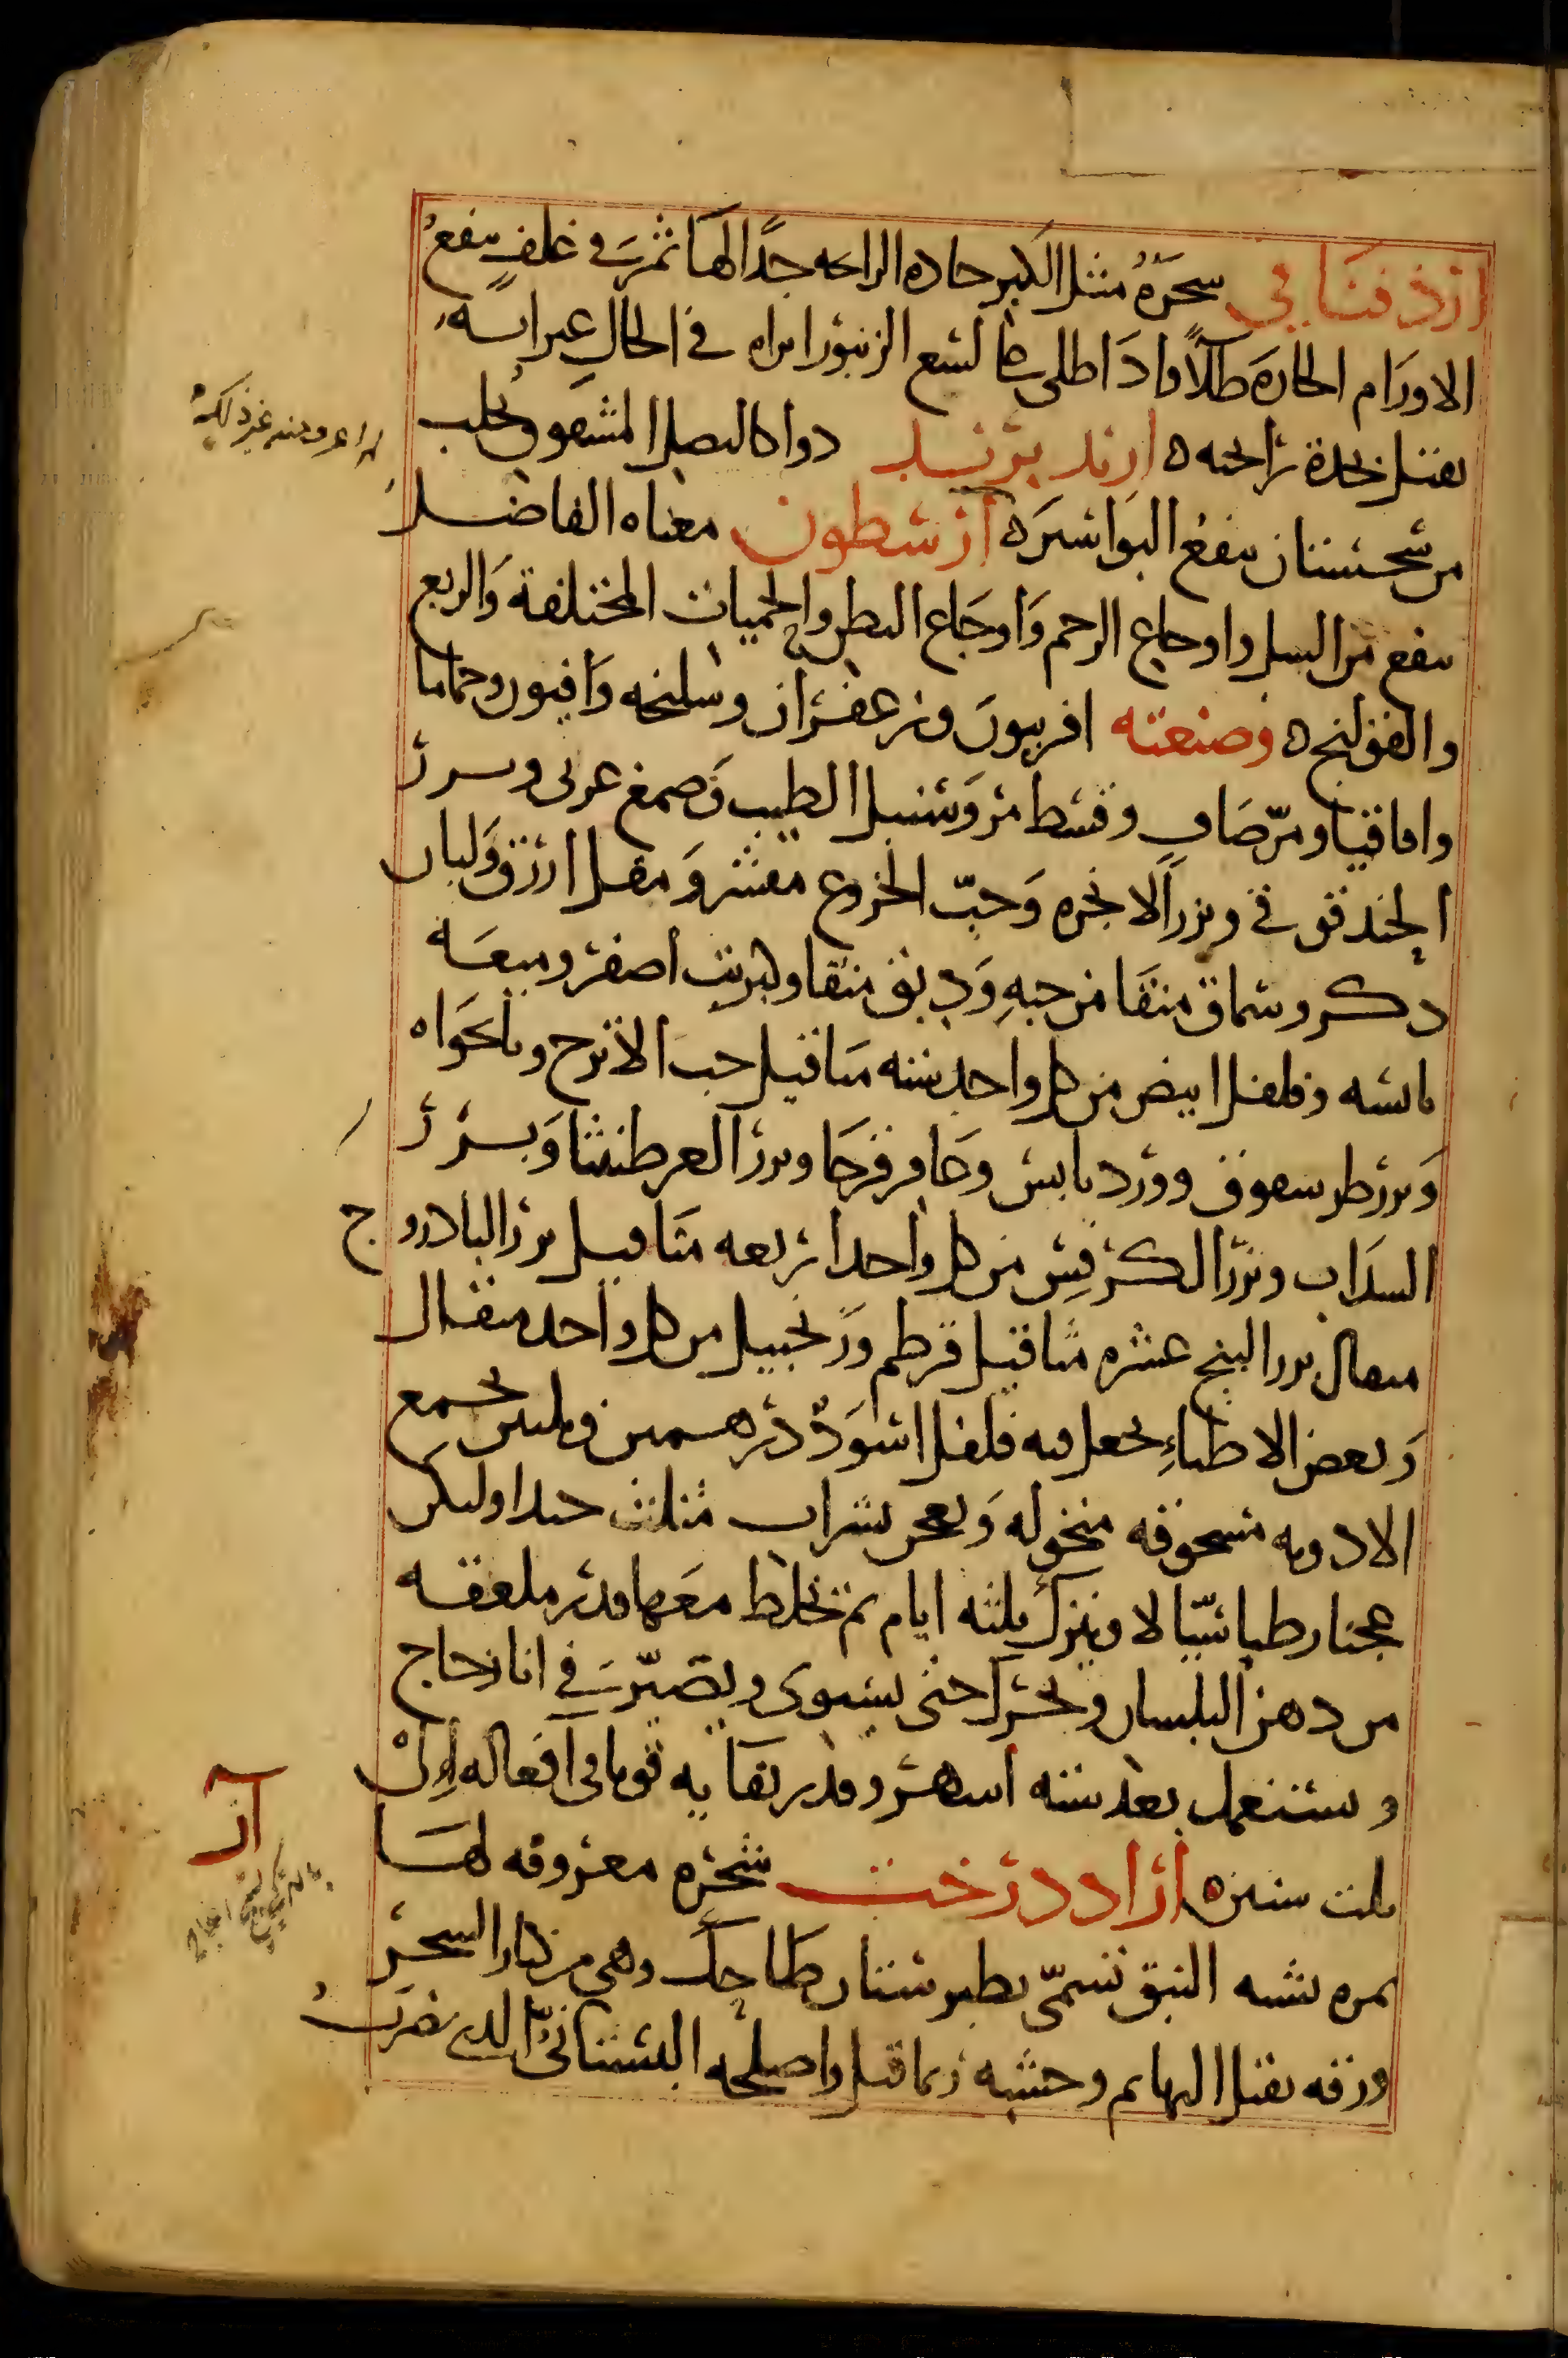 ازذفنانى شجرة مثل الكبر حادة الرائحة جدًا لها ثمر فى غلف ينفع
الاورام الحارة طلاً واذا طلى على لسع الزنبور ابراه فى الحال غير انه
يقتل بحدة رائحته ارند برند دواء كالبصل المشقوق يجلب
من سجستان ينفع البواسير ارسطون معناه الفاضل
ينفع من السل واوجاع الرحم واوجاع البطن والحميات المختلفة والربع
والقولنج وصنعته افربيون وزعفران وسليخه وافيون وحماما
واقاقيا ومرّ صاف وقسط مر وسنبل الطيب وصمغ عربى وبزر
الحندقوقى وبزر الانجره وحبّ الخروع مقشر ومقل ازرق ولبان
ذكر وسماق منقا من حبه ودبق منقا وكبريت اصفر وميعه
يابسه وفلفل ابيض من كل واحد سته مثاقيل حب الاترج ونانخواه
وبزر طرسعوق وورد يابس وعاقرقرحا وبزر العرطنيثا وبزر
السذاب وبزر الكرفس من كل واحد اربعه مثاقيل بزر الباذروج
مثقال بزر البنج عشره مثاقيل قرطم وزنجبيل من كل واحد مثقال
وبعض الاطباء يجعل فيه فلفل اسود درهمين وليس يجمع
الادويه مسحوقه منخوله ويعجن بشراب مثلث جيدا وليكن
عجنا رطبا سيّالا ويترك ثلثه ايام ثم يخلط معها قدر ملعقه
من دهن البلسان ويحرك حتى يستوى ويصيّر فى انا زجاج
ويستعمل بعد سته اشهر وقدر بقايه قويا فى افعاله الى
ثلث سنين ازاد درخت شجره معروفه لها
ثمره تشبه النبق تسمّى بطبرستان طاحك وهى من كبار الشجر
ورقه يقتل البهايم وخشبه ربما قتل واصلحه البستانىّ الذى يضرب
آز